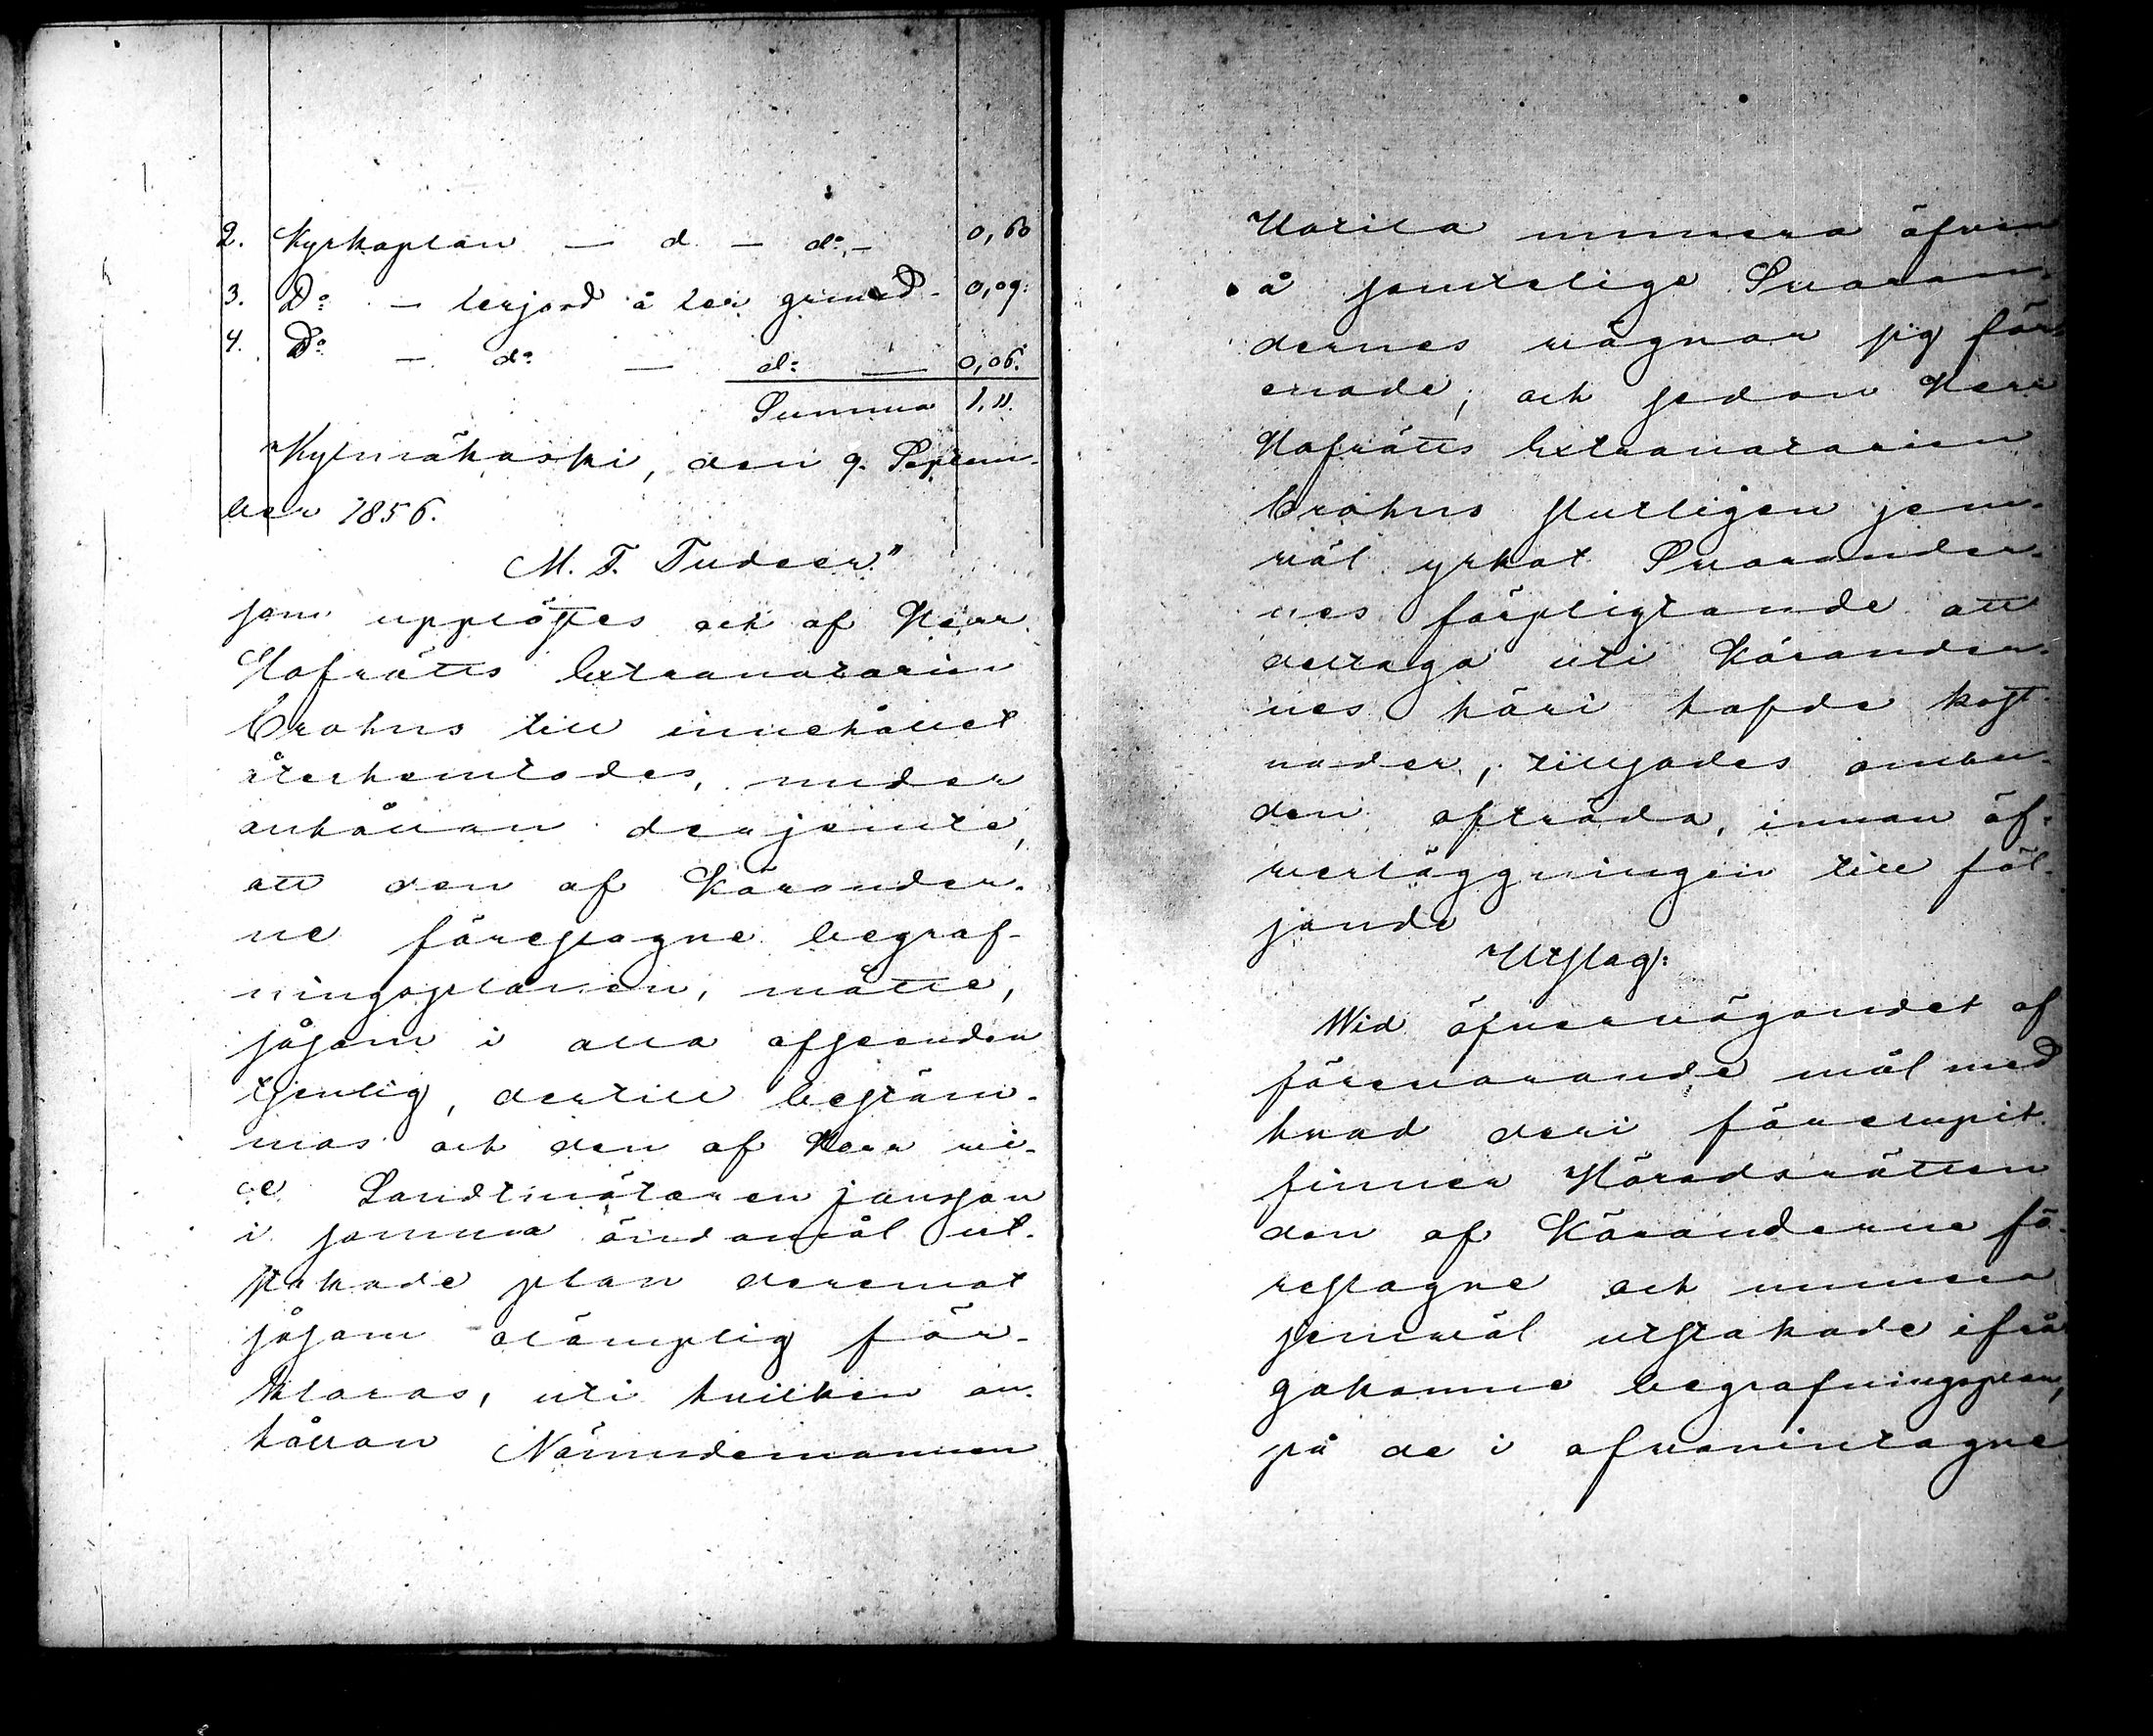 2. Kyrkoplan — d — do — 0,60
3. Do — lerjord å ler grund 0,09.
4. Do — do — do — 0,06.
Summa 1,11.
Kylmäkoski, den 9. Septem-
ber 1856.
M. T. Tudeer."
som upplästes och af Herr
Hofrätts Extranotarien
Crohns till innehållet
återhemtades, under
anhållan derjemte,
att den af Kärander-
ne föreslagne begraf-
ningsplanen, måtte,
såsom i alla afseenden
tjenlig, dertill bestäm-
mas och den af Herr vi-
ce Landtmätaren Jansson
i samma ändamål ut-
stakade plan deremot
såsom olämplig för-
klaras, uti hvilken an-
hållan Nämndemannen
Uotila numera äfven
å samtelige Svaran-
dernes vägnar sig för-
enade; och sedan Herr
Hofrätts Extranotarien
Crohns slutligen jem-
väl yrkat Svarander-
nes förpligtande att
deltaga uti Kärander-
nes häri hafde kost-
nader, tillsades ombu-
den afträda, innan öf-
verläggningen till föl-
jande
Utslag:
Wid öfvervägandet af
förevarande mål med
hvad deri förelupit
finner Häradsrätten
den af Käranderne fö-
reslagne och numera
jemväl utstakade ifrå-
gakomne begrafningsplan,
på de i ofvanintagne